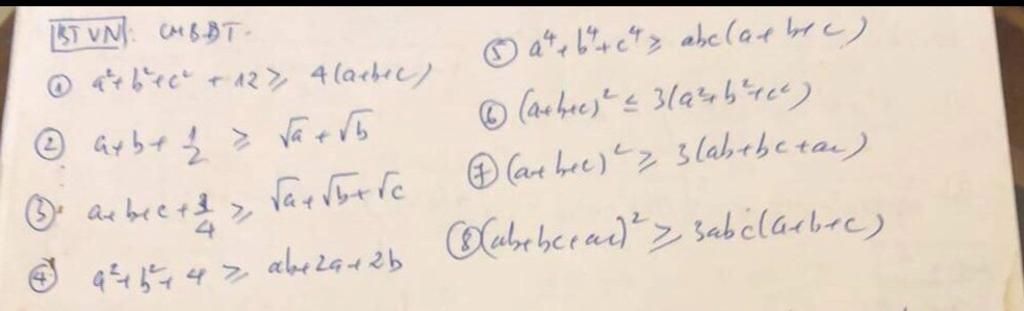 BTVN: CMBĐT.
① a²+b²+c² + 12 ≥ 4(a+b+c)
② a+b+ 1/2 ≥ √a + √b
③ a+b+c+ 3/4 ≥ √a+√b+√c
④ a²+b²+4 ≥ ab+2a+2b
⑤ a⁴+b⁴+c⁴ ≥ abc(a+b+c)
⑥ (a+b+c)² ≤ 3(a²+b²+c²)
⑦ (a+b+c)² ≥ 3(ab+bc+ac)
⑧ (ab+bc+ac)² ≥ 3abc(a+b+c)